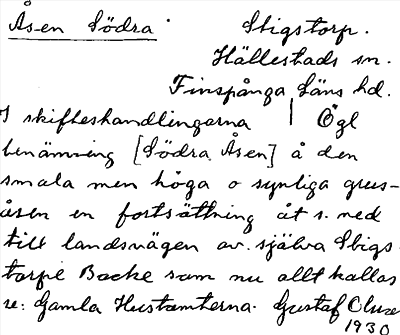 Åsen Södra
Stigstorp.
Hällestads sn.
Finspånga Läns hd.
I skifteshandlingarna | Ögl
benämning [Södra Åsen] å den
smala men höga o synliga grus-
åsen en fortsättning åt s. ned
till landsvägen av själva Stigs
torpe Backe som nu allt kallas
se: Gamla Hustomterna. Gustaf
1930